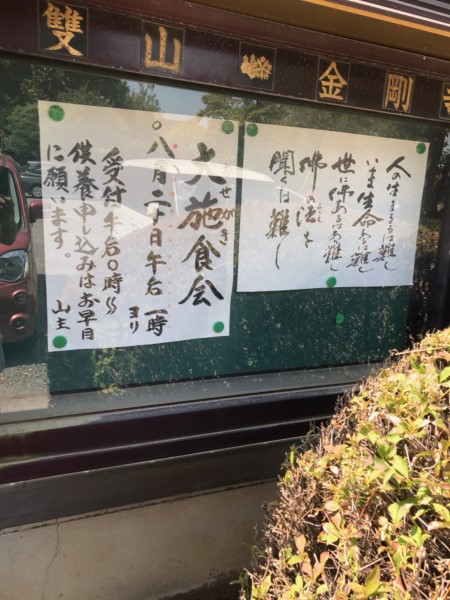 雙山 金剛寺
人の生まるるは難し
いま生命あるは難し
世に佛あるは難し
佛の法を
聞くは難し
せがき
大施食会
。八月二十日午后一時ヨリ
受付午后0時〜
供養申し込みはお早目
に願います。 山主